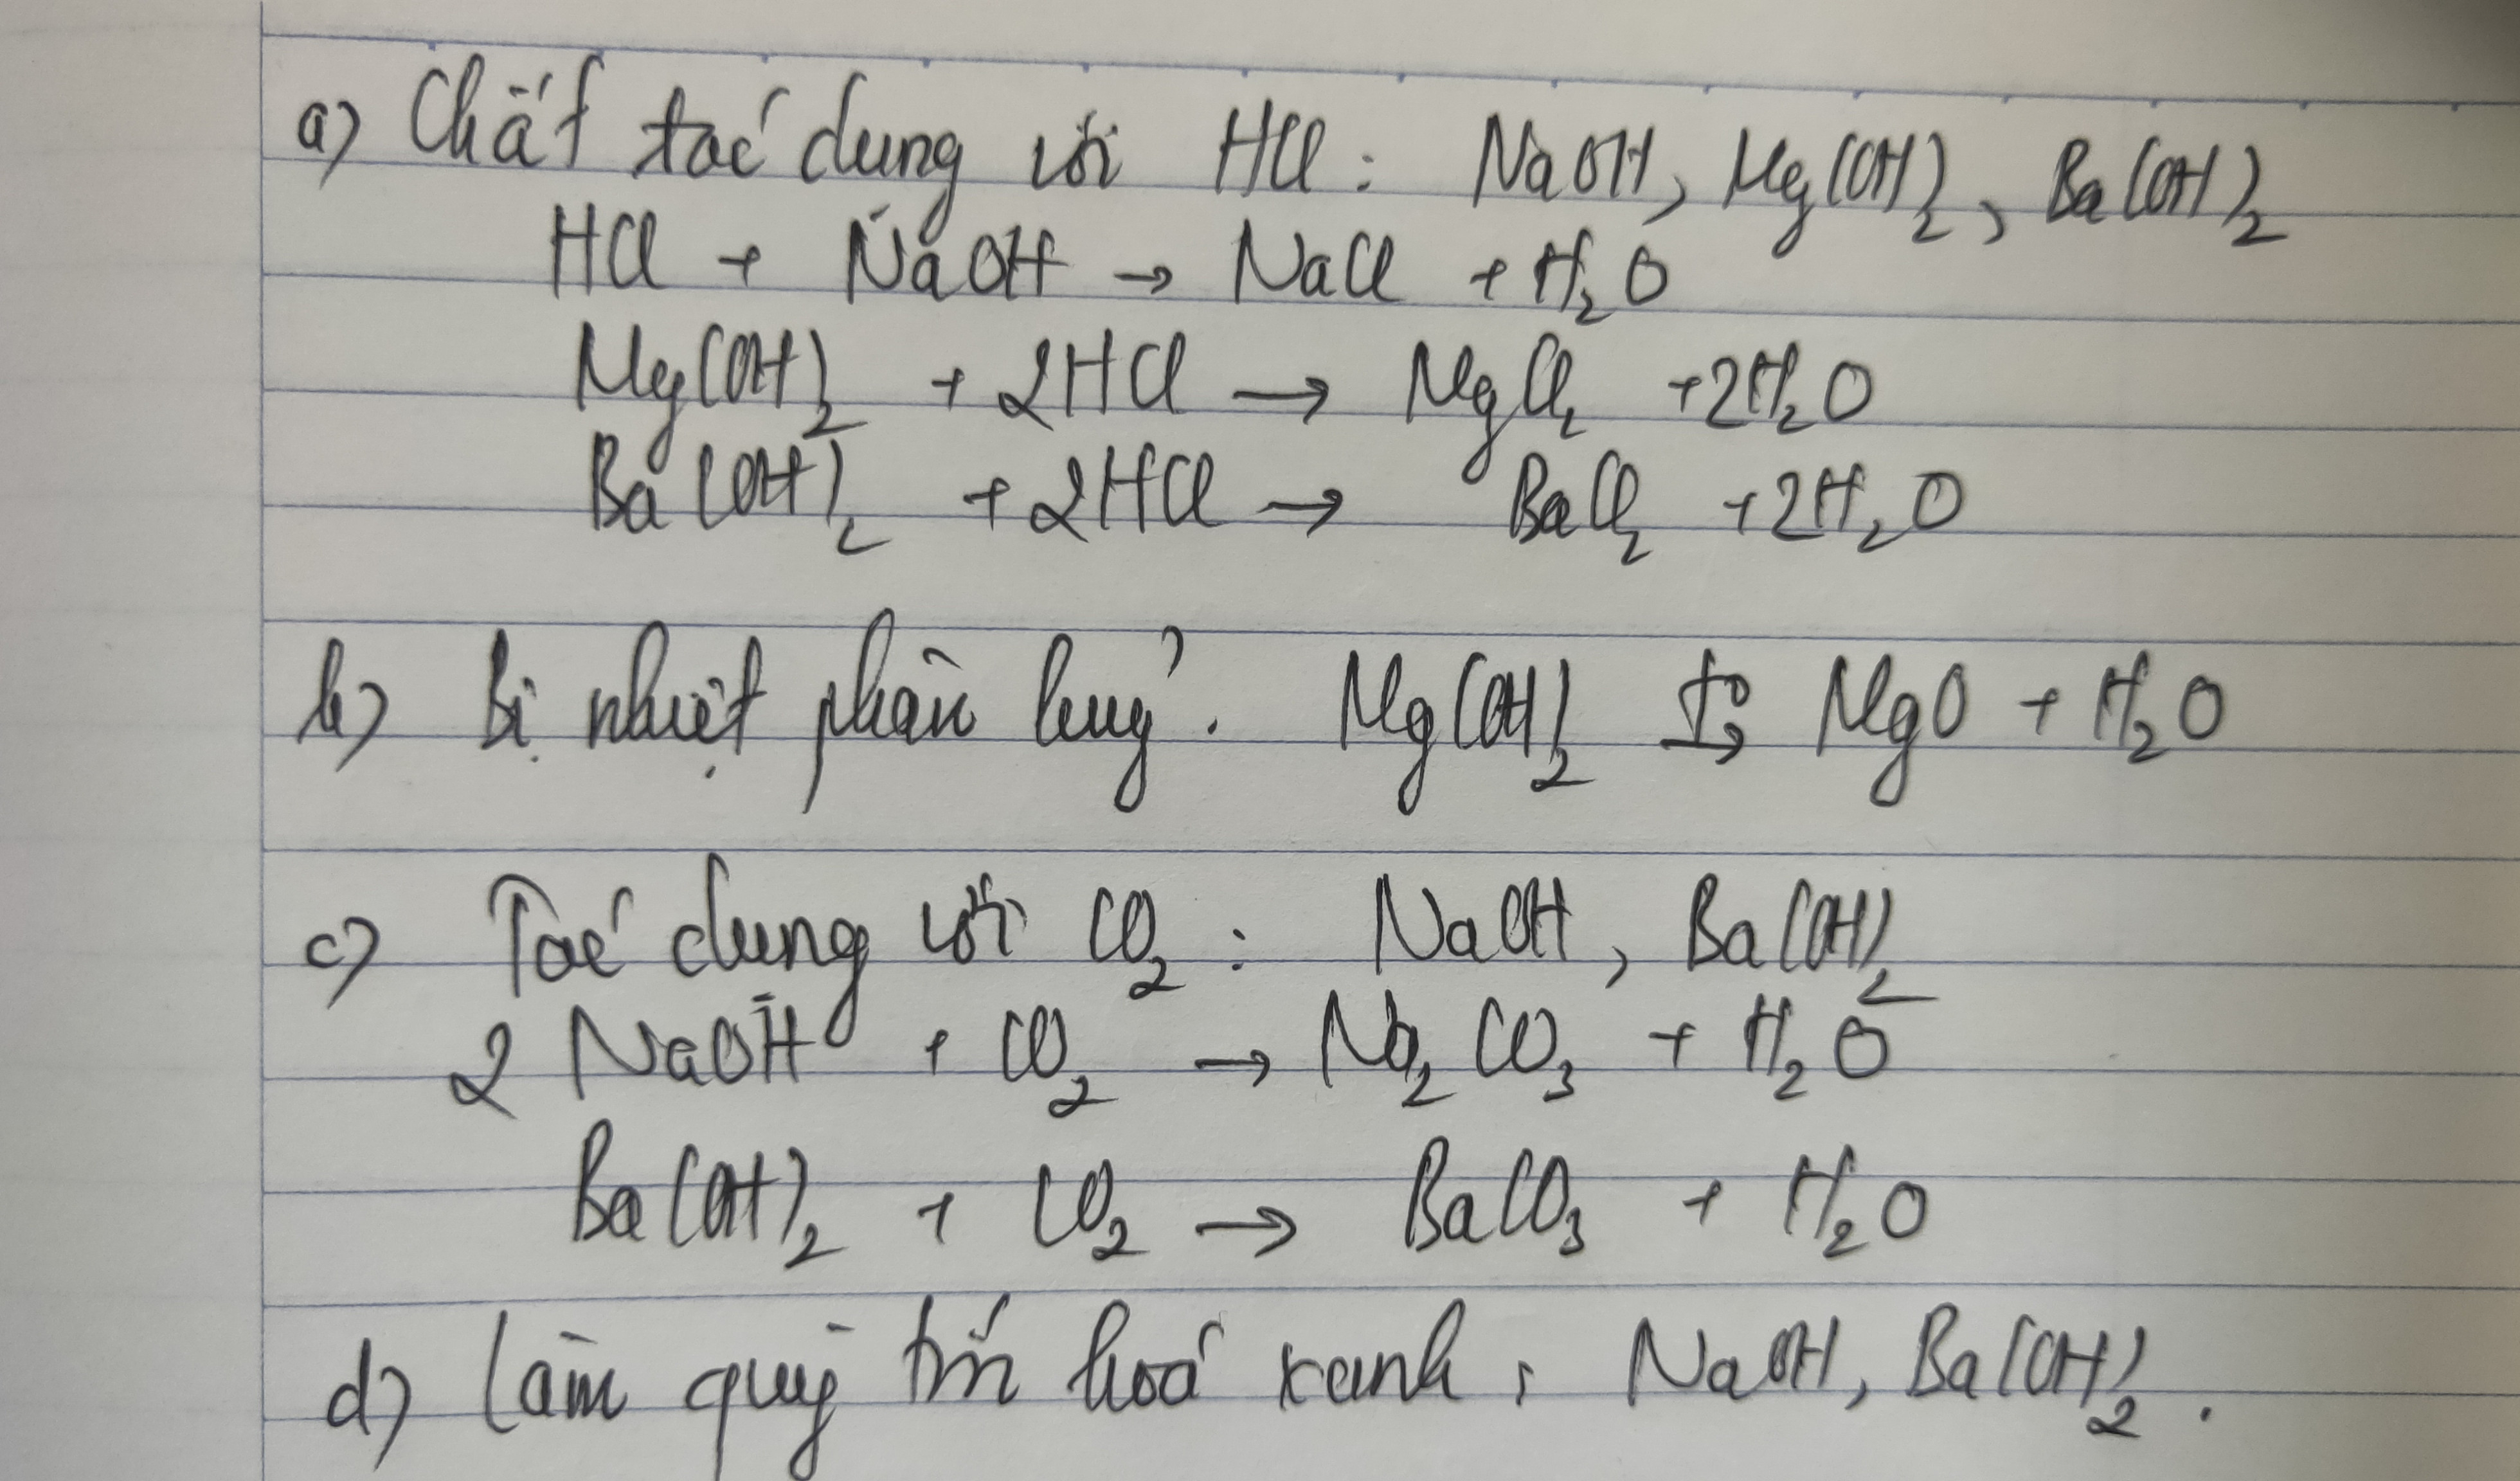 a) Chất tác dụng với HCl: NaOH, Mg(OH)₂, Ba(OH)₂
HCl + NaOH → NaCl + H₂O
Mg(OH)₂ + 2HCl → MgCl₂ + 2H₂O
Ba(OH)₂ + 2HCl → BaCl₂ + 2H₂O
b) Bị nhiệt phân huỷ. Mg(OH)₂ t° → MgO + H₂O
c) Tác dụng với CO₂: NaOH, Ba(OH)₂
2 NaOH + CO₂ → Na₂CO₃ + H₂O
Ba(OH)₂ + CO₂ → BaCO₃ + H₂O
d) Làm quỳ tím hoá xanh: NaOH, Ba(OH)₂.